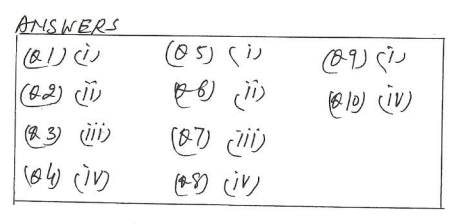 ANSWERS
(Q1) (i) (Q5) (i) (Q9) (i)
(Q2) (ii) (Q6) (ii) (Q10) (iv)
(Q3) (iii) (Q7) (iii)
(Q4) (iv) (Q8) (iv)